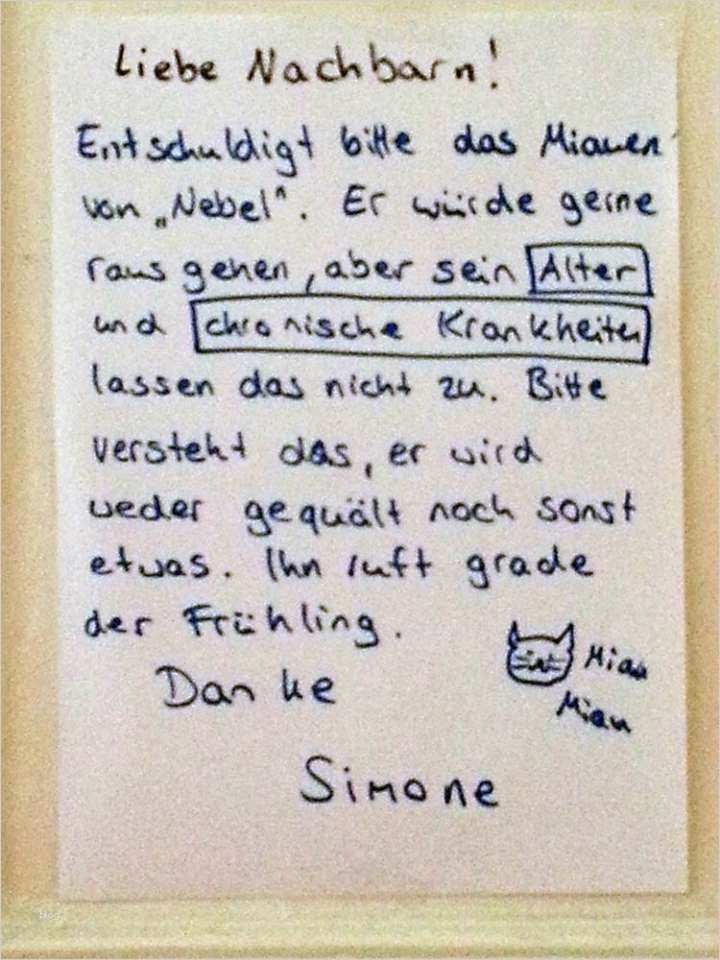 Liebe Nachbarn!
Entschuldigt bitte das Miauen
von „Nebel“. Er würde gerne
raus gehen, aber sein Alter
und chronische Krankheiten
lassen das nicht zu. Bitte
versteht das, er wird
weder gequält noch sonst
etwas. Ihn ruft grade
der Frühling.
Miau
Miau
Danke
Simone